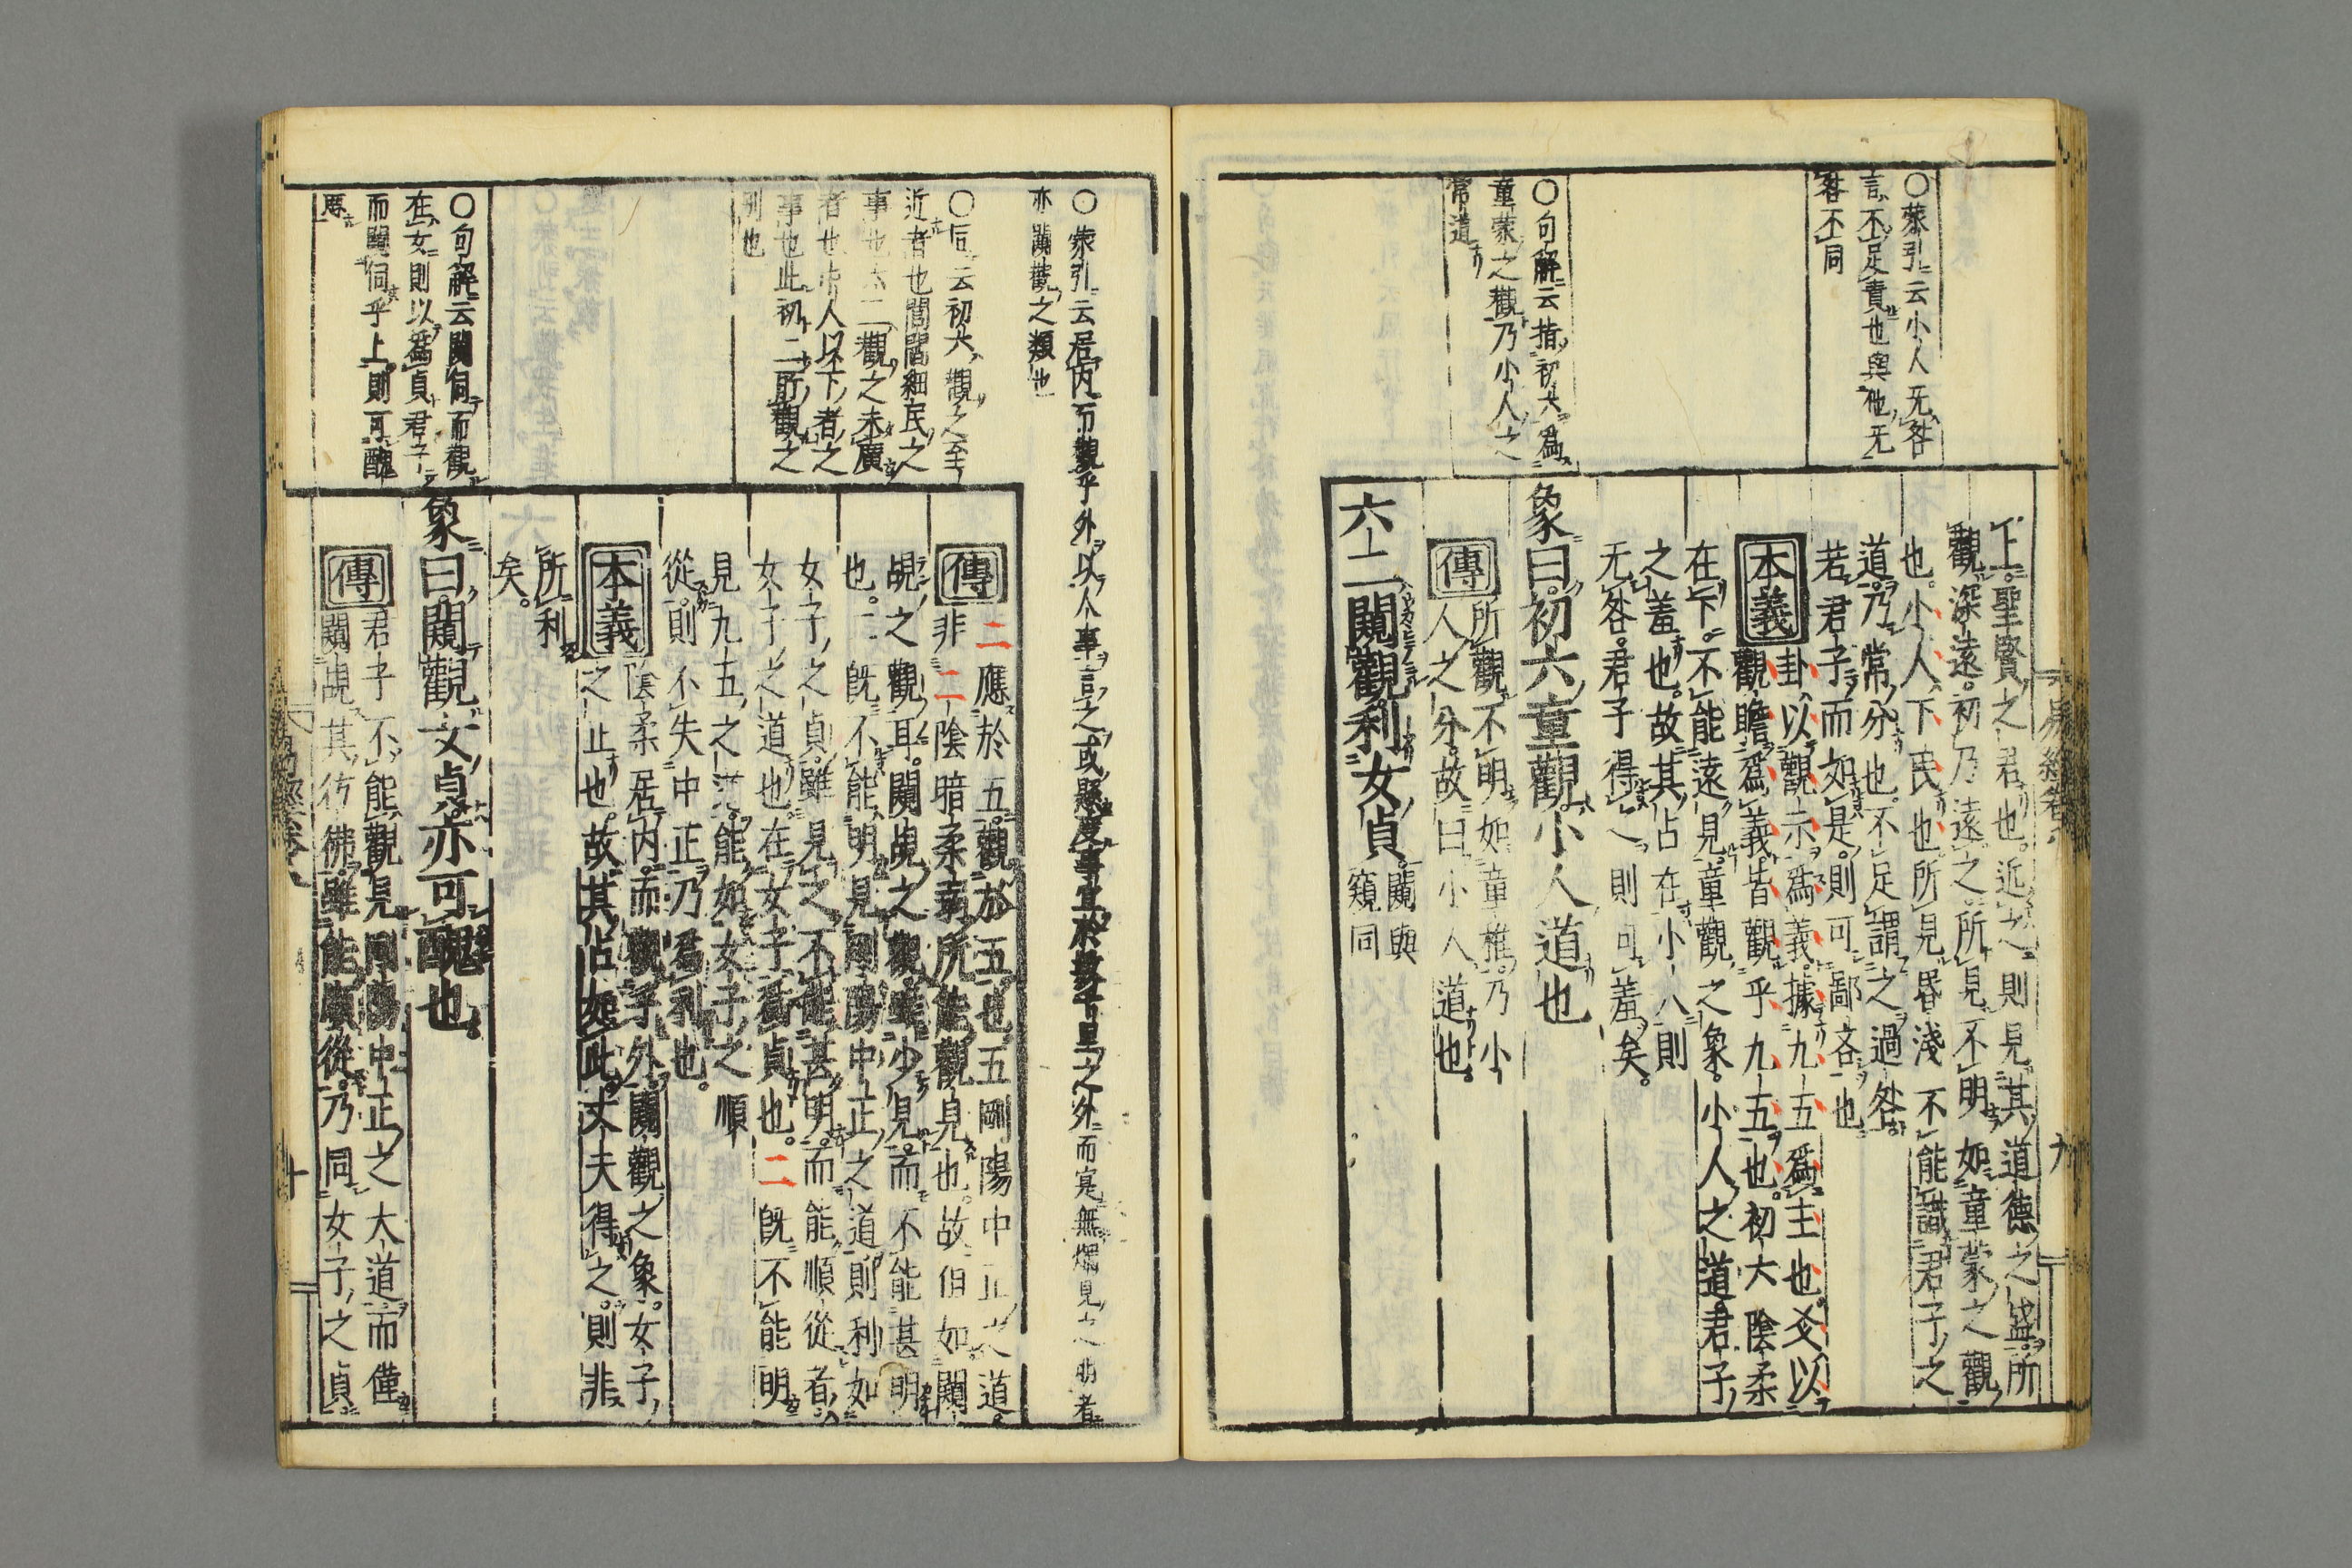 ○蒙引云小人无咎
言不足責也與他无
咎不同
○句解云指初六爲
童蒙之觀乃小人之
常道
上聖賢之君也近之則見其道德之盛所
觀深遠初乃遠之所見不明如童蒙之觀
也小人下民也所見昏淺不能識君子之
道乃常分也不足謂之過咎
若君子而如是則可鄙吝也
本義
卦以觀示爲義據九五爲主也爻以
觀瞻爲義皆觀乎九五也初六陰柔
在下不能遠見童觀之象小人之道君子
之羞也故其占在小人則
无咎君子得之則可羞矣
象曰初六童觀小人道也
傳
所觀不明如童稚乃小
人之分故曰小人道也
六二闚觀利女貞
闚與
窺同
易經卷八
九
○蒙引云居内而觀乎外以人事言之或懸度事宜於數千里之外而寔無燭見之明者
亦闚觀之類也
○同云初六觀之至
近者也閭閻細民之
事也六二觀之未廣
者也士人以下者之
事也此初二所觀之
別也
傳
二應於五觀於五也五剛陽中正之道
非二陰暗柔弱所能觀見也故但如闚
覘之觀耳闚覘之觀雖少見而不能甚明
也二旣不能明見剛陽中正之道則利如
女子之貞雖見之不能甚明而能順從者
女子之道也在女子爲貞也二旣不能明
見九五之道能如女子之順
從則不失中正乃爲利也
本義
陰柔居内而觀乎外闚觀之象女子
之正也故其占如此丈夫得之則非
所利
矣
○句解云闚伺而觀
在女則以爲貞君子
而闚伺乎上則可醜
象曰闚觀女貞亦可醜也
傳
君子不能觀見剛陽中正之大道而僅
闚覘其彷彿雖能順從乃同女子之貞
十